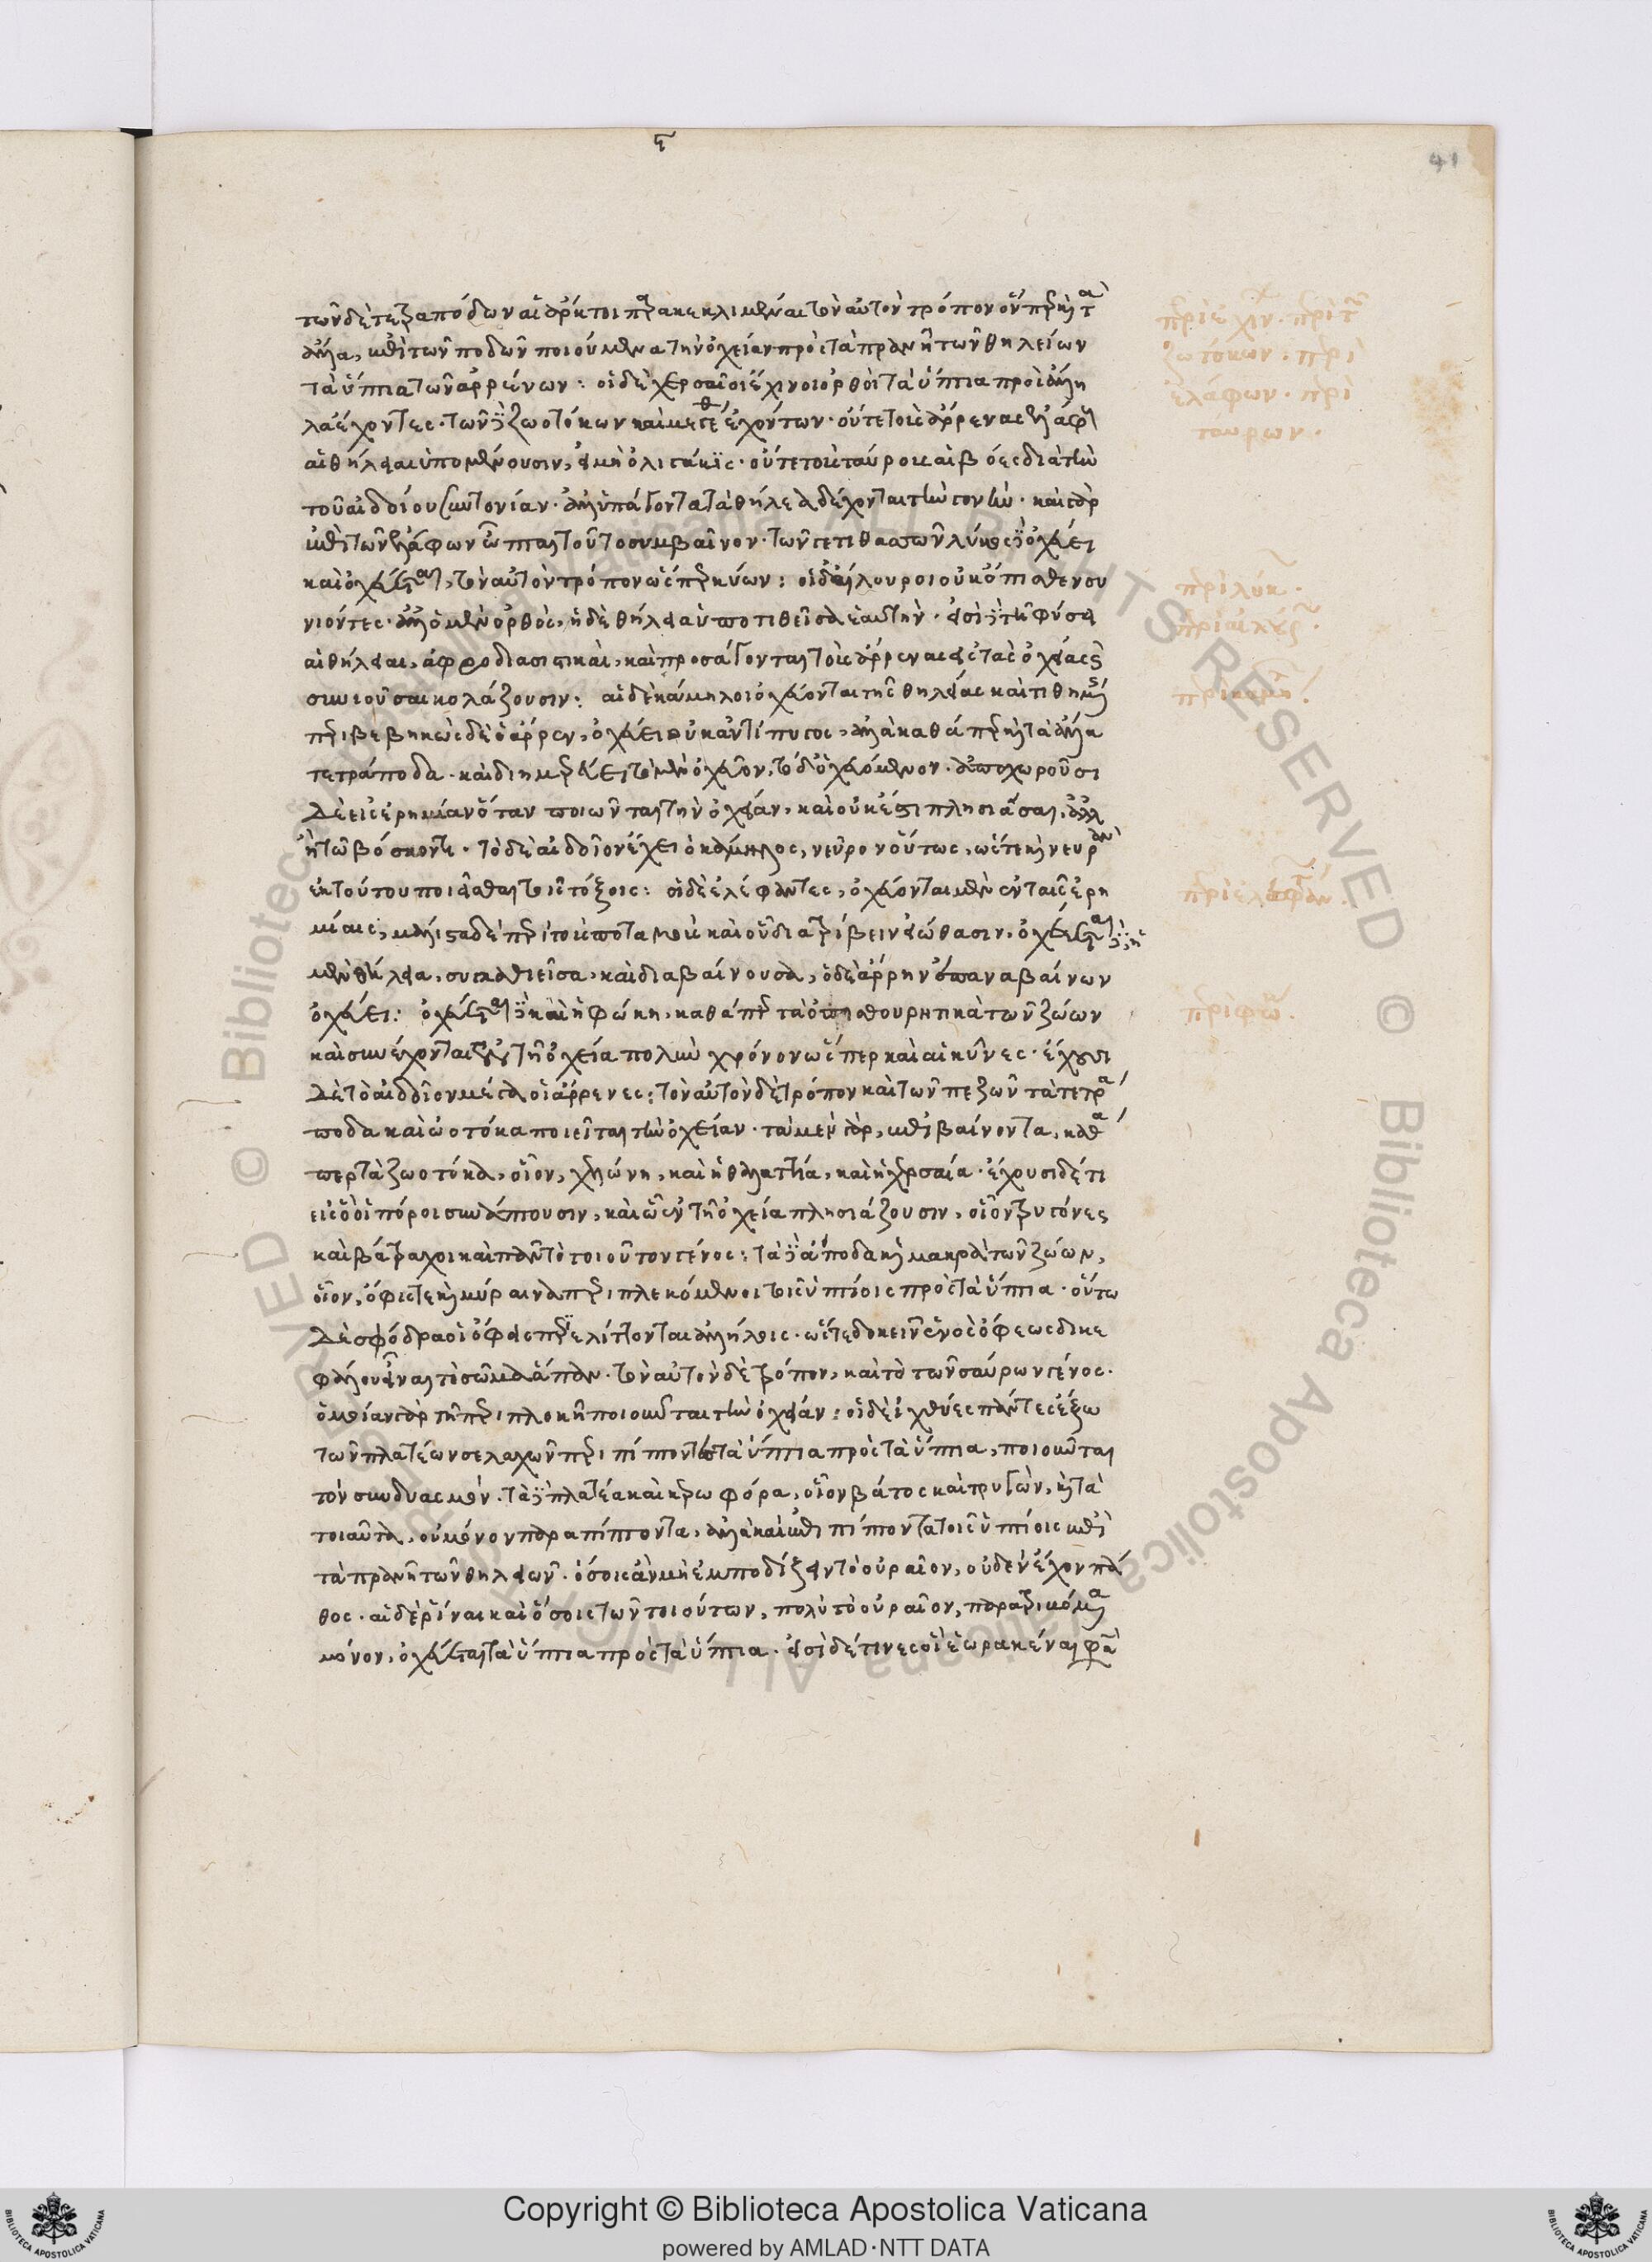 ε
41
τῶν δὲ τετραπόδων αἱ ἄρκτοι παρακεκλιμέναι τὸν αὐτὸν τρόπον ὅνπερ καὶ τὰ
ἄλλα, ἐπὶ τῶν ποδῶν ποιούμενα τὴν ὀχείαν πρὸς τὰ πρανῆ τῶν θηλείων
τὰ ὕπτια τῶν ἀρρένων: οἱ δὲ χερσαῖοι ἐχῖνοι ὀρθοὶ τὰ ὕπτια πρὸς ἄλλη
λα ἔχοντες. τῶν δὲ ζωοτόκων καὶ μέγεθος ἐχόντων. οὔτε τοὺς ἄρρενας ἐλάφους
αἱ θήλειαι ὑπομένουσιν, εἰ μὴ ὀλιγάκις. οὔτε τοὺς ταύρους αἱ βόες διὰ τὴν
τοῦ αἰδοίου συντονίαν. ἀλλ' ὑπάγοντα τὰ θήλεα δέχονται τὴν γονήν. καὶ γὰρ
ἐπὶ τῶν ἐλάφων ὦπται τοῦτο συμβαῖνον. τῶν γε τιθασσῶν λύκος δὲ ὀχεύει
καὶ ὀχεύεται, τὸν αὐτὸν τρόπον ὥσπερ κύων: οἱ δ' αἴλουροι οὐκ ὄπισθεν συ
νιόντες. ἀλλ' ὁ μὲν ὀρθὸς, ἡ δὲ θήλεια ὑποτιθεῖσα ἑαυτήν. εἰσὶ δὲ τὴν φύσιν
αἱ θήλειαι, ἀφροδισιαστικαὶ, καὶ προσάγονται τοὺς ἄρρενας εἰς τὰς ὀχείας καὶ
συνιοῦσαι κολάζουσιν: αἱ δὲ κάμηλοι ὀχεύονται τῆς θηλείας καθημένης
περιβεβηκὼς δὲ ὁ ἄρρεν, ὀχεύει οὐκ ἀντίπυγος, ἀλλὰ καθάπερ καὶ τὰ ἄλλα
τετράποδα. καὶ διημερεύει τὸ μὲν ὀχεῦον, τὸ δ' ὀχευόμενον. ἀποχωροῦσι
δὲ εἰς ἐρημίαν ὅταν ποιῶνται τὴν ὀχείαν, καὶ οὐκ ἔστι πλησιᾶσαι, ἀλλ'
ἢ τῷ βόσκοντι. τὸ δὲ αἰδοῖον ἔχει ὁ κάμηλος, νεῦρον οὕτως, ὥστε καὶ νευρὰν
ἐκ τούτου ποιεῖσθαι τοῖς τόξοις: οἱ δὲ ἐλέφαντες, ὀχεύονται μὲν ἐν ταῖς ἐρη
μίαις, μάλιστα δὲ περὶ τοὺς ποταμοὺς καὶ οὗ διατρίβειν εἰώθασιν. ὀχεύεται δὲ ἡ
μὲν θήλεια, συγκαθιεῖσα, καὶ διαβαίνουσα, ὁ δὲ ἄρρην ἐπαναβαίνων
ὀχεύει: ὀχεύεται δὲ καὶ ἡ φώκη, καθάπερ τὰ ὀπισθουρητικὰ τῶν ζώων
καὶ συνέχονται ἐν τῇ ὀχεία πολὺν χρόνον ὥσπερ καὶ αἱ κύνες. ἔχουσι
δὲ τὸ αἰδοῖον μέγα οἱ ἄρρενες: τὸν αὐτὸν δὲ τρόπον καὶ τῶν πεζῶν τὰ τετρά
ποδα καὶ ὠοτόκα ποιεῖται τὴν ὀχείαν. τὰ μὲν γὰρ, ἐπιβαίνοντα, καθά
περ τὰ ζωοτόκα, οἷον, χελώνη, καὶ ἡ θαλαττία, καὶ ἡ χερσαία. ἔχουσι δέ τι
εἰς ὃ οἱ πόροι συνάπτουσιν, καὶ ᾧ ἐν τῇ ὀχεία πλησιάζουσιν, οἷον τρυγόνες
καὶ βάτραχοι καὶ πᾶν τὸ τοιοῦτον γένος: τὰ δὲ ἄποδα καὶ μακρὰ τῶν ζώων,
οἷον, ὄφις τε καὶ μύραινα περιπλεκόμενοι τοῖς ὑπτίοις πρὸς τὰ ὕπτια. οὕτω
δὲ σφόδρα οἱ ὄφεις περιελίττονται ἀλλήλοις. ὥστε δοκεῖν ἑνὸς ὄφεως δικε
φάλου εἶναι τὸ σῶμα ἅπαν. τὸν αὐτὸν δὲ τρόπον, καὶ τὸ τῶν σαύρων γένος.
ὁμοίαν γὰρ τῇ περιπλοκῇ ποιοῦνται τὴν ὀχείαν: οἱ δὲ ἰχθύες πάντες ἔξω
τῶν πλατέων σελαχῶν περιπίπτοντες τὰ ὕπτια πρὸς τὰ ὕπτια, ποιοῦνται
τὸν συνδυασμόν. τὰ δὲ πλατέα καὶ κερκοφόρα, οἷον βάτος καὶ τρυγὼν, καὶ τὰ
τοιαῦτα, οὐ μόνον παραπίπτοντα, ἀλλὰ καὶ ἐπιπίπτοντα τοῖς ὑπτίοις ἐπὶ
τὰ πρανῆ τῶν θηλειῶν. ὅσοις ἂν μὴ ἐμποδίζει τὸ οὐραῖον, οὐδὲν ἔχον πά
θος. αἱ δὲ ῥῖναι καὶ ὅσοις τῶν τοιούτων, πολὺ τὸ οὐραῖον, παρατριβόμενα
μόνον, ὀχεύεται τὰ ὕπτια πρὸς τὰ ὕπτια. εἰσὶ δέ τινες οἳ ἑωρακέναι φασὶ
περὶ ἐχίν. περὶ τ
ζωτόκων. περὶ
ἐλάφων. περὶ
ταυρων.
περὶ λύκ.
περὶ αἰλούρ.
περὶ καμήλ.
περὶ ἐλεφάν.
περὶ φώ.
Copyright © Biblioteca Apostolica Vaticana
powered by AMLAD·NTT DATA